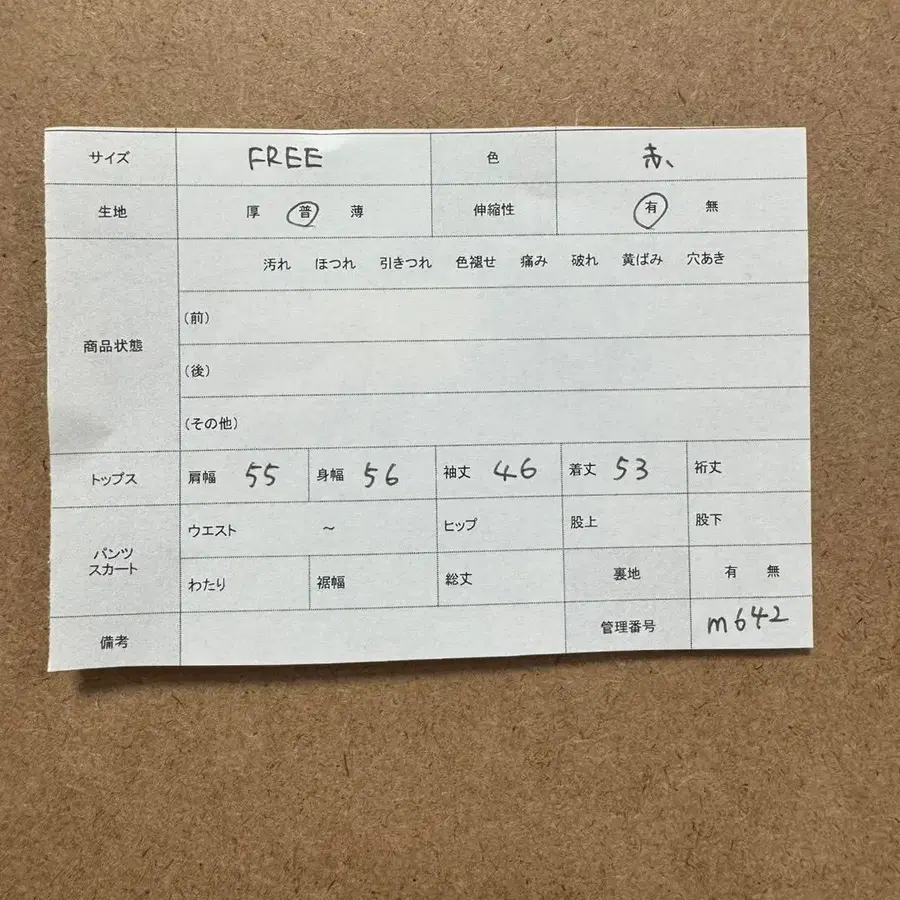 サイズ FREE 色 赤、
生地 厚 普 薄 伸縮性 有 無
汚れ ほつれ 引きつれ 色褪せ 痛み 破れ 黄ばみ 穴あき
商品状態
(前)
(後)
(その他)
トップス 肩幅 55 身幅 56 袖丈 46 着丈 53 裄丈
パンツ
スカート
ウエスト ～ ヒップ 股上 股下
わたり 裾幅 総丈 裏地 有 無
備考 管理番号 m642